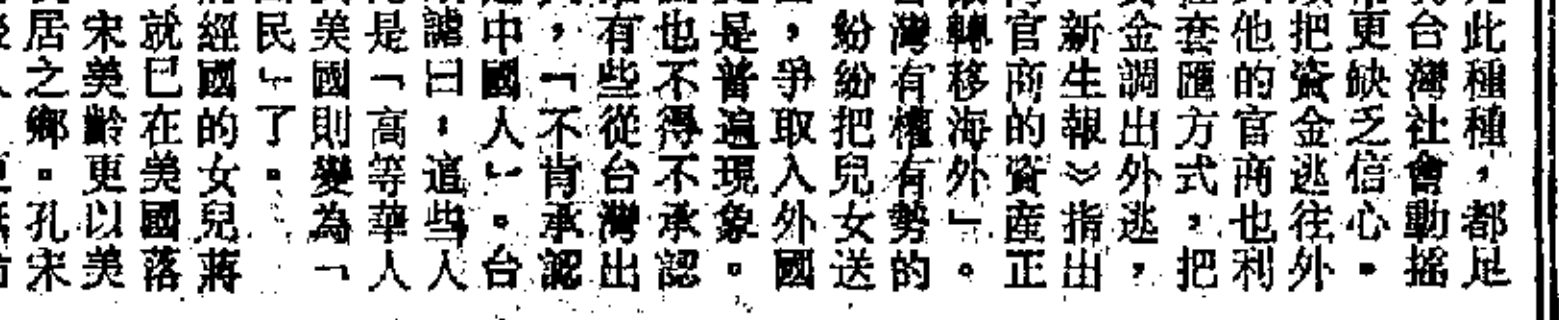 此種種，都足
台灣社會動搖
更缺乏信心。
把資金逃往外
他的官商也利
套匯方式，把
金調出外逃，
新生報》指出
官商的資産正
轉移海外」。
灣有權有勢的
紛紛把兒女送
，爭取入外國
是普遍現象。
也不得不承認
有些從台灣出
，「不肯承認
中國人」。台
謔曰：這些人
是「高等華人
美國則變為「
民」了。
經國的女兒蔣
就已在美國落
宋美齡更以美
居之鄉。孔宋